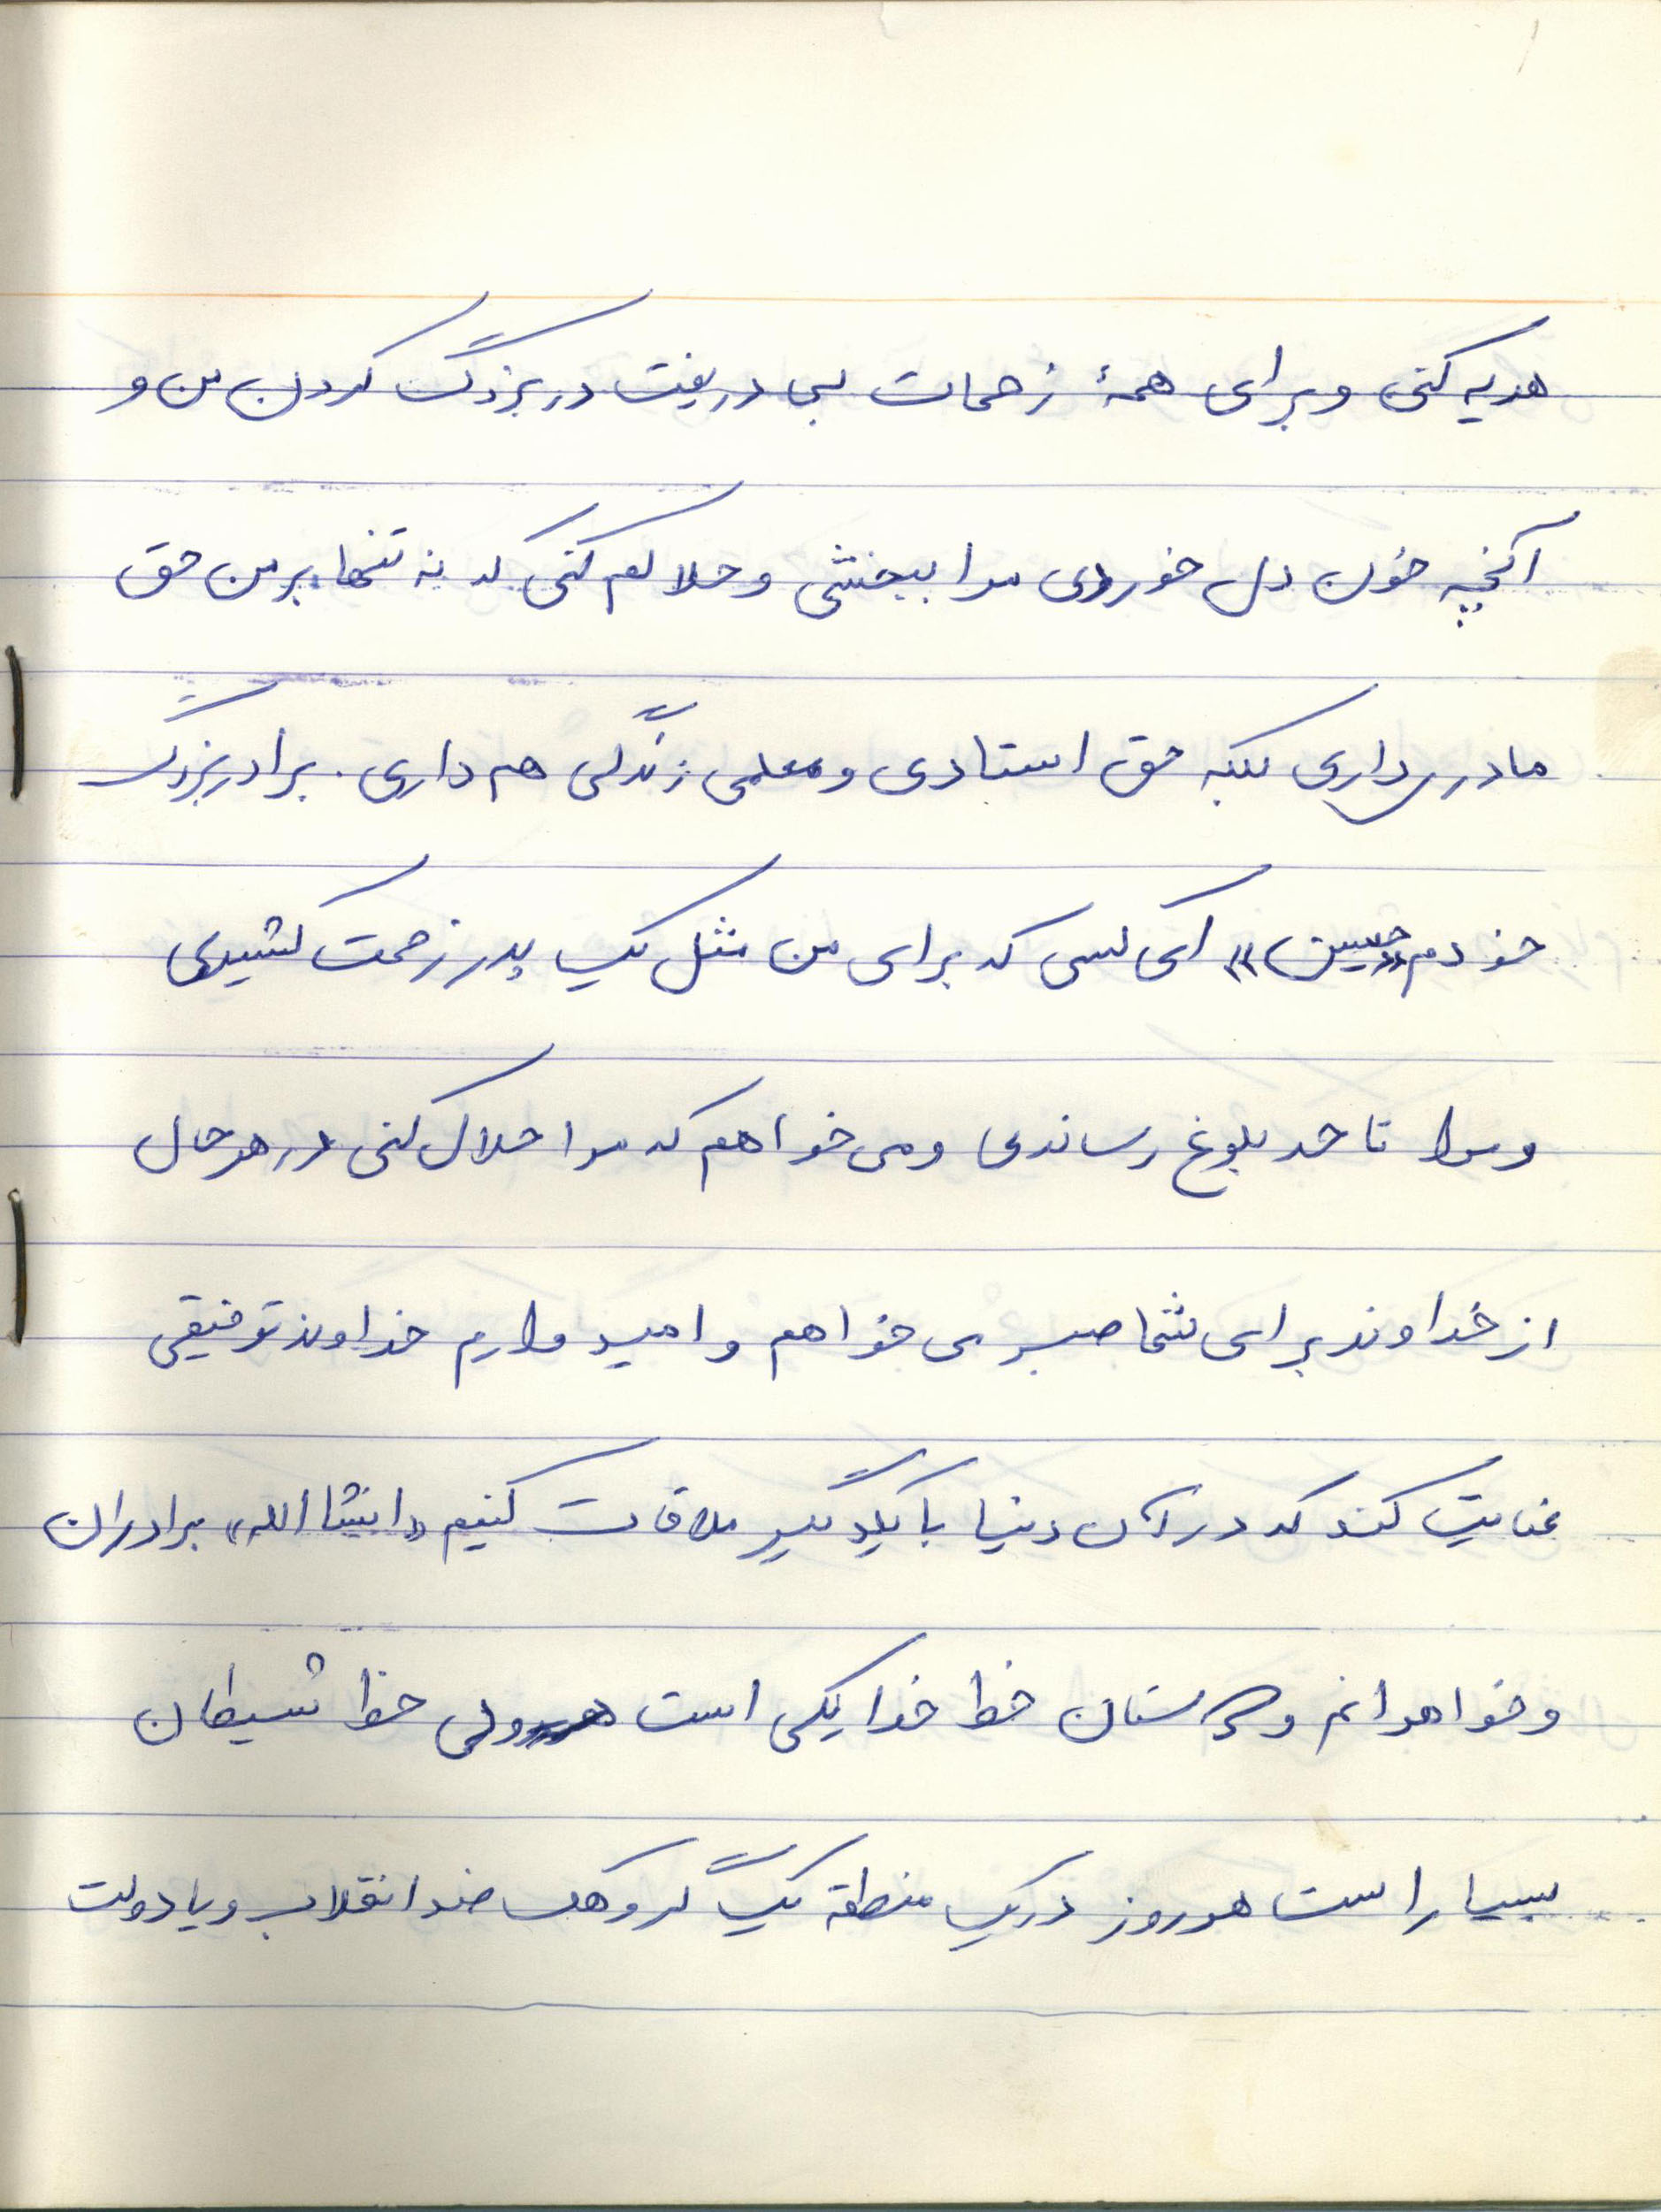 هدیه کنی و برای همهٔ زحمات بی دریغت در بزرگ کردن من و
آنچه خون دل خوردی مرا ببخشی و حلالم کنی که نه تنها بر من حق
مادری داری بلکه حق استادی و معلمی زندگی هم داری. برادر بزرگ
خودم «حسین» ای کسی که برای من مثل یک پدر زحمت کشیدی
و مرا تا حد بلوغ رساندی و می خواهم که مرا حلال کنی در هر حال
از خداوند برای شما صبر می خواهم و امیدوارم خداوند توفیقی
عنایت کند که در آن دنیا با یکدیگر ملاقات کنیم «انشاالله» برادران
و خواهرانم و دوستان خط خدا یکی است ولی خط شیطان
بسیار است هر روز در یک منطقه یک گروهک ضد انقلاب و یا دولت